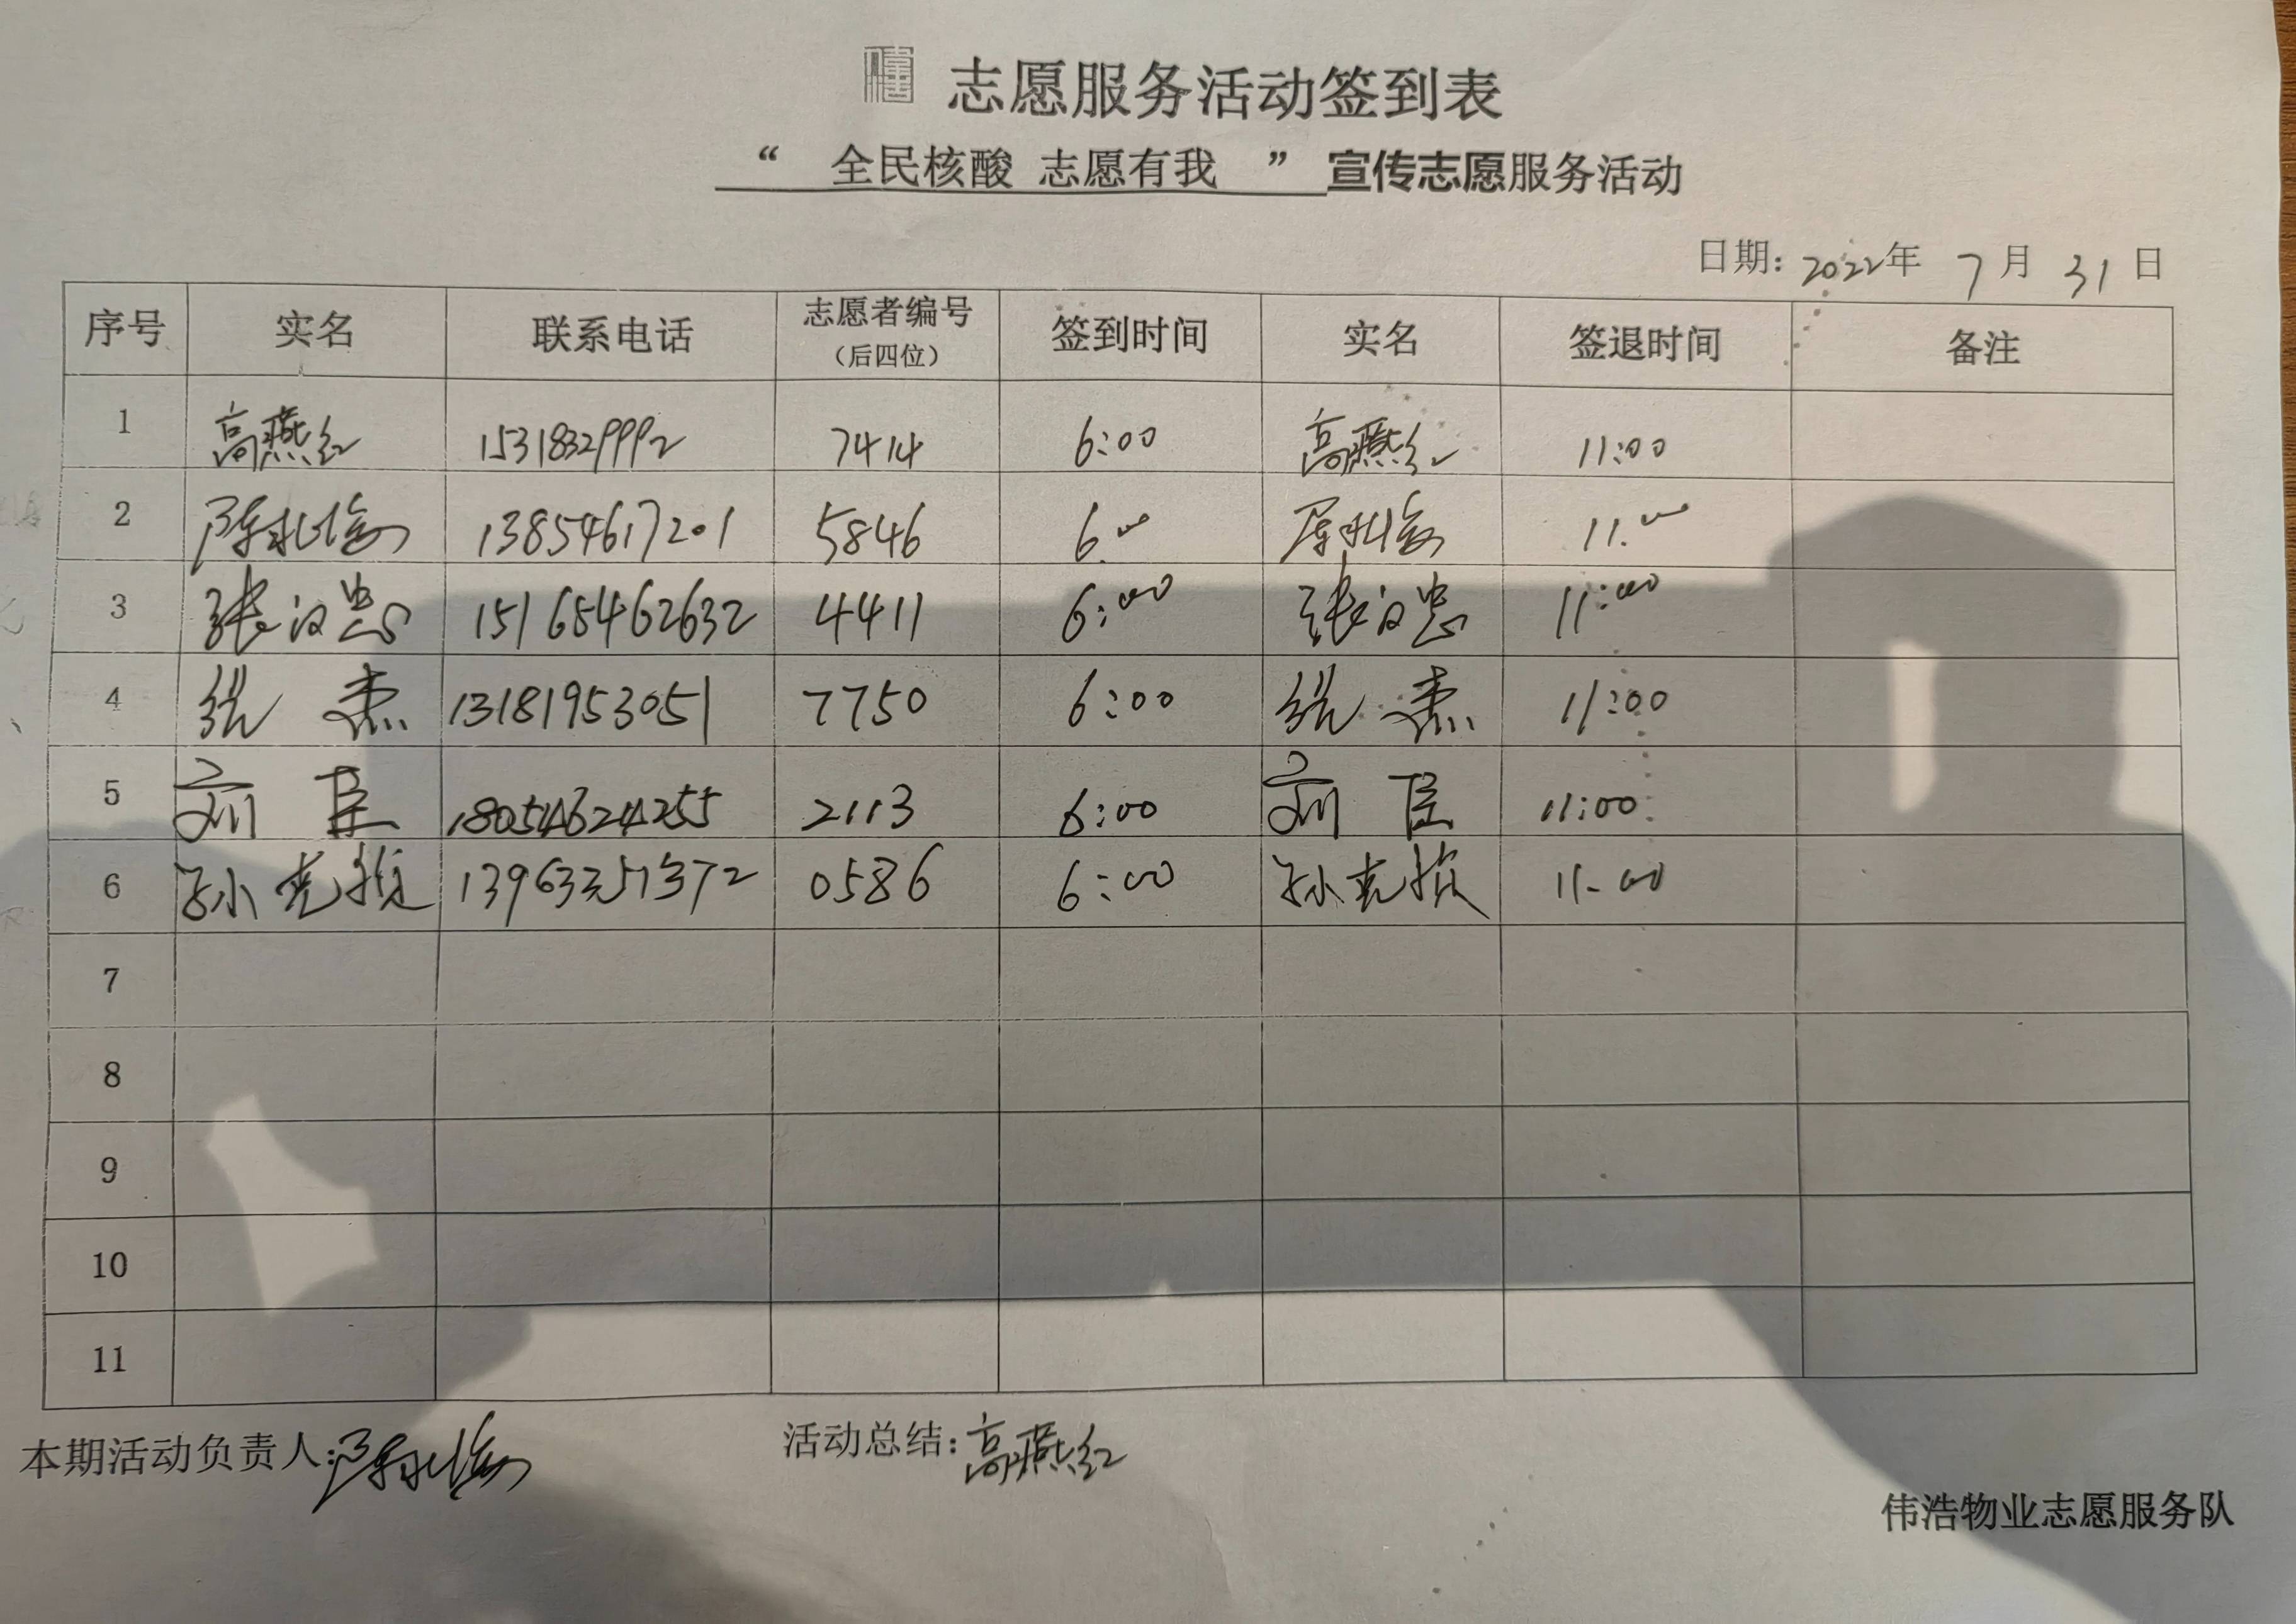 志愿服务活动签到表
“ 全民核酸 志愿有我 ” 宣传志愿服务活动
日期：2022年 7 月 31 日
序号 实名 联系电话 志愿者编号（后四位） 签到时间 实名 签退时间 备注
1 高燕红 15318329992 7414 6:00 高燕红 11:00
2 13854617201 5846 6:00 11:00
3 张汝忠 15165462632 4411 6:00 张汝忠 11:00
4 13181953051 7750 6:00 11:00
5 刘臣 18054624255 2113 6:00 刘臣 11:00
6 孙克 13963351372 0586 6:00 孙克 11:00
7
8
9
10
11
本期活动负责人： 活动总结：高燕红
伟浩物业志愿服务队